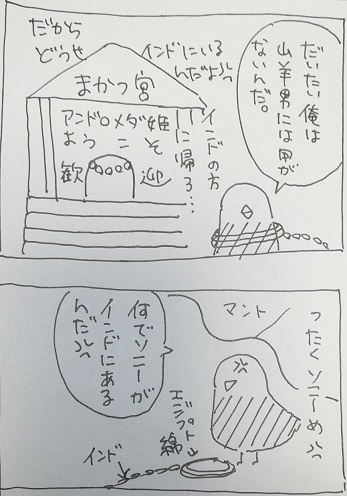 だいたい俺は
山羊男には用が
ないんだ。
インドにいる
んだよッ
だから
どうせ
まかつ宮
アンドロメダ姫
ようこそ
歓迎
インドの方
に帰ろ…
ったくソニーめッ
マント
何でソニーが
インドにある
んだッ
エジプト
綿
インド